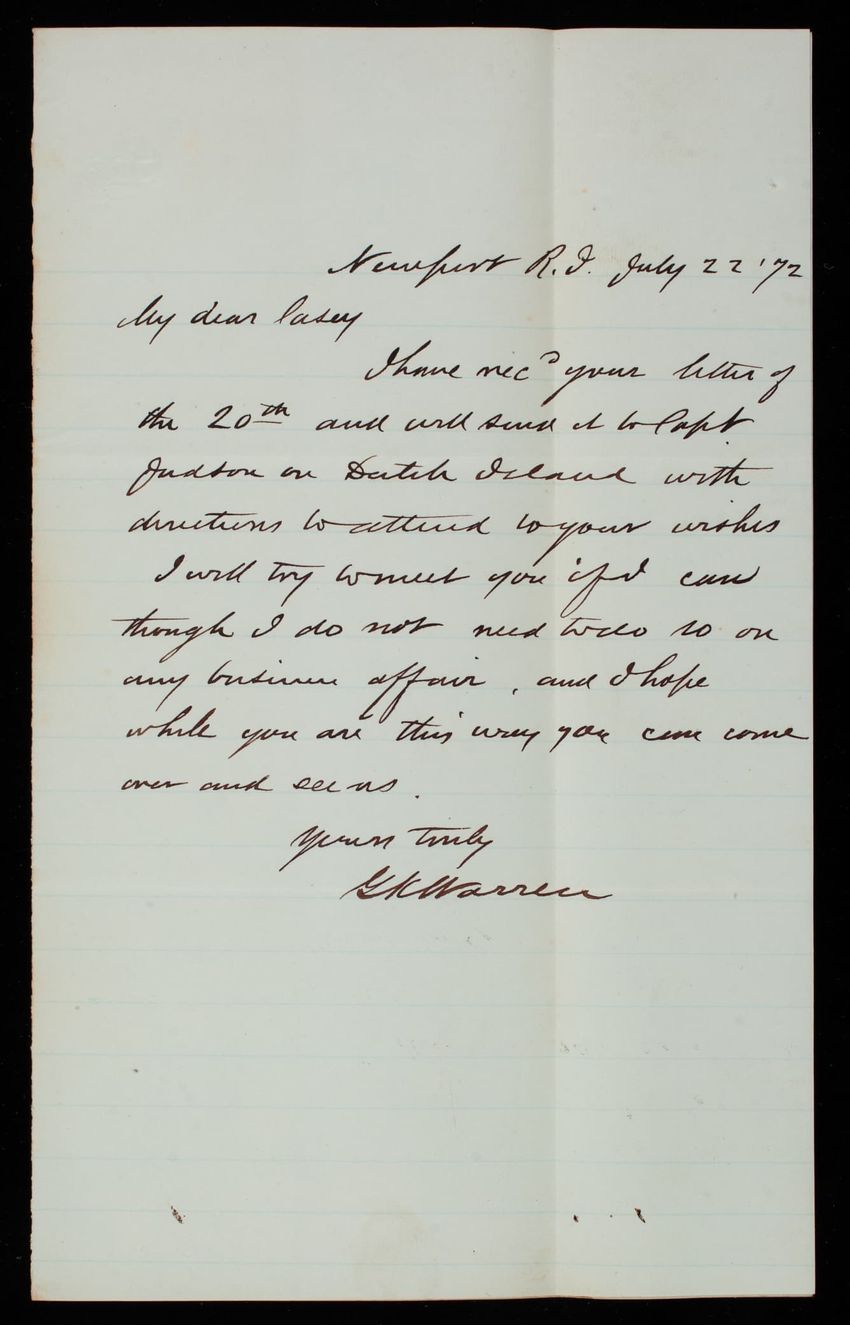 Newport R.I. July 22 '72
My dear Casey
I have rec'd your letter of
the 20th and will send it to Capt
Judson on Dutch Island with
directions to attend to your wishes
I will try to meet you if I can
though I do not need to do so on
any business affair, and I hope
while you are this way you can come
over and see us.
Yours truly
GKWarren